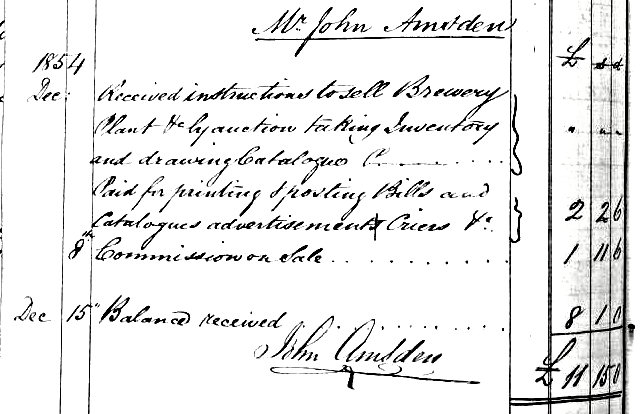 Mr. John Amsden
1854 £ s d
Dec: Received instructions to sell Brewery
Plant &c by auction taking Inventory " " "
and drawing Catalogue
Paid for printing & posting Bills and
Catalogues advertisements Criers &c 2 2 6
8th Commission on Sale 1 11 6
Dec 15" Balance received 8 1 0
John Amsden
£ 11 15 0